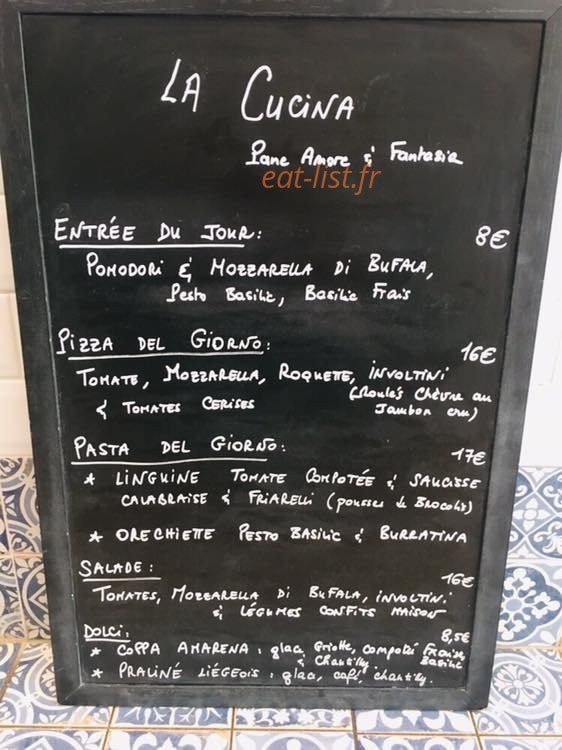 LA CUCINA
Pane Amore & Fantasia
eat-list.fr
ENTRÉE DU JOUR: 8€
POMODORI & MOZZARELLA DI BUFALA,
Pesto Basilic, Basilic Frais
PIZZA DEL GIORNO: 16€
TOMATE, MOZZARELLA, ROQUETTE, INVOLTINI
(Roulés Chèvre au
& TOMATES CERISES Jambon cru)
PASTA DEL GIORNO: 17€
* LINGUINE TOMATE COMPOTÉE & SAUCISSE
CALABRAISE & FRIARELLI (pousses de Brocolis)
* ORECHIETTE PESTO BASILIC & BURRATINA
SALADE: 16€
TOMATES, MOZZARELLA DI BUFALA, INVOLTINI
& LÉGUMES CONFITS MAISON
DOLCI: 8,5€
* COPPA AMARENA: glace Griotte, compotée Fraise
& Chantilly. Basilic
* PRALINÉ LIÉGEOIS: glace, café, chantilly.